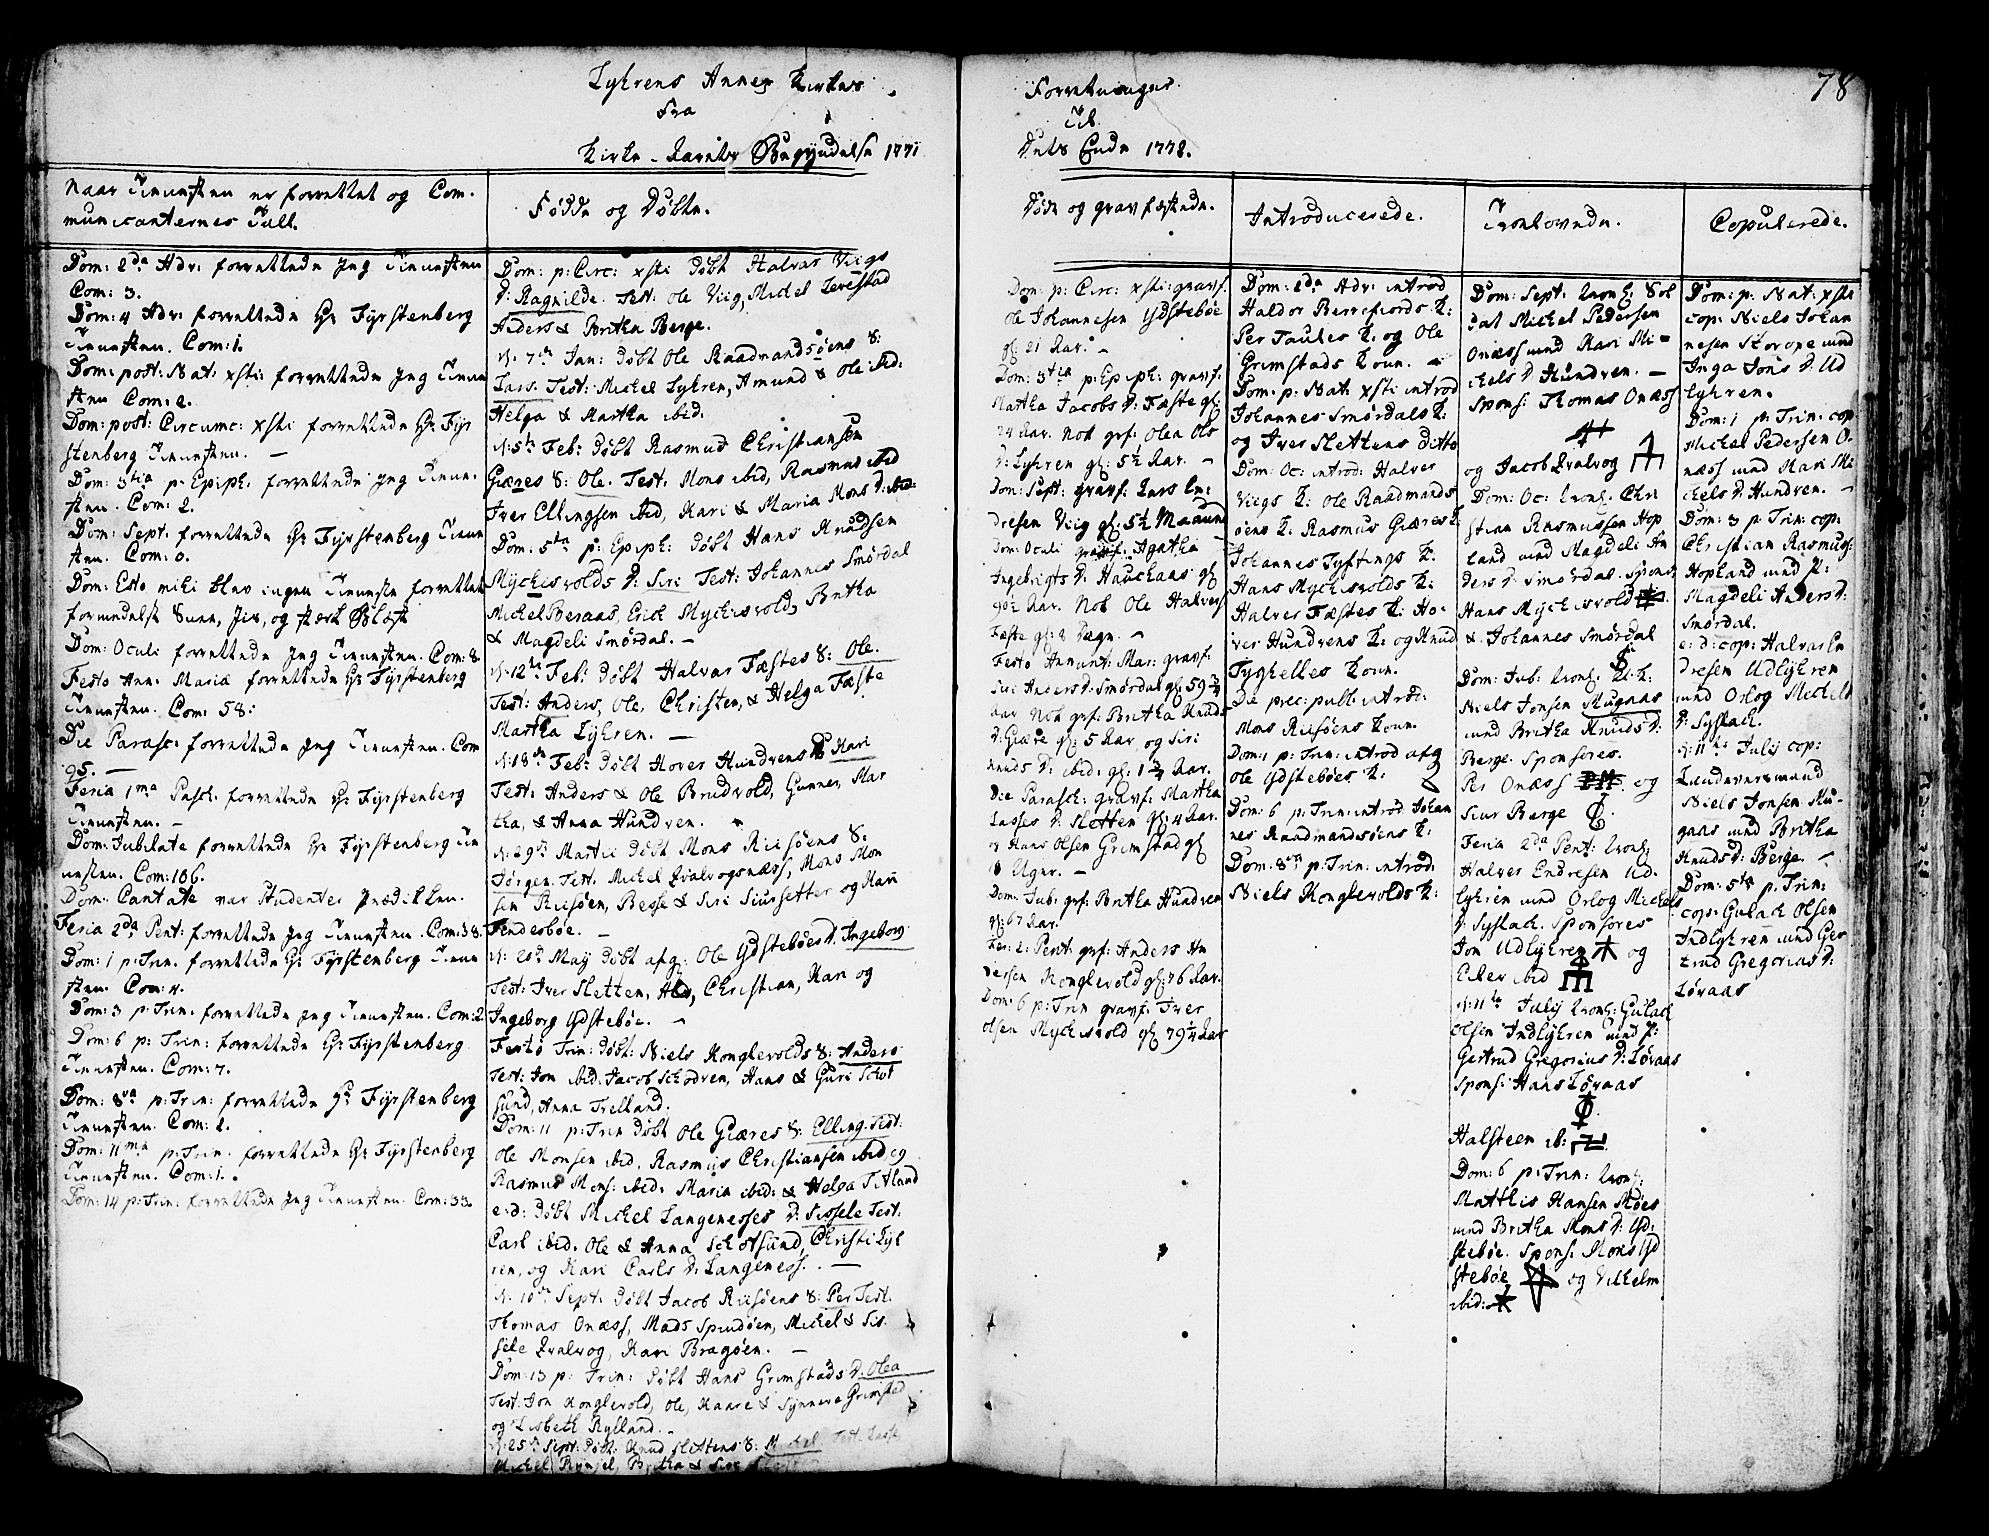 Lykrens Annex Kirkes
Fra
Kirke-Aarets Begyndelse 1771
Naar Tienesten er forrettet og Com-
municanternes Tall.
Fødde og Døbte.
Dom: 2da Adv: forrettede Jeg Tienesten
Com: 3.
Dom: 4 Adv: forrettede Hr Fyrstenberg
Tienesten. Com: 1.
Dom: post: Nat: xsti: forrettede Jeg Tiene
sten Com: 2.
Dom: post: Circumc: xsti forrettede Hr Fyr
stenberg Tienesten. —
Dom: 3tia p: Epiph: forrettede Jeg Tiene-
sten. Com: 2.
Dom: Sept. forrettede Hr Fyrstenberg Tiene
sten. Com: 0.
Dom: Esto mihi blev ingen Tieneste forrettet
formedelst Snee, Jis, og stærk Blæst
Dom: Oculi forrettede Jeg Tienesten. Com: 8
Festo Ann. Mariæ forrettede Hr Fyrstenberg
Tienesten. Com: 58:
Die Parasc: forrettede Jeg Tienesten. Com
95. —
Feria 1ma Pasch: forrettede Hr Fyrstenberg
Tienesten. —
Dom: Jubilate forrettede Hr Fyrstenberg Tie
nesten. Com: 106.
Dom: Cantate var Studenter Prædikken.
Feria 2da Pent: forrettede Jeg Tienesten. Com: 38.
Dom: 1 p: Trin. forrettede Hr Fyrstenberg Tiene
sten. Com: 4.
Dom: 3 p: Trin. forrettede Jeg Tienesten. Com: 2
Dom: 6 p: Trin: forrettede Hr Fyrstenberg
Tienesten. Com: 7.
Dom: 8va p: Trin: forrettede Hr Fyrstenberg
Tienesten. Com: 2.
Dom: 11ma p: Trin. forrettede Hr Fyrstenberg
Tienesten. Com: 1.
Dom: 14 p: Trin: forrettede Jeg Tienesten. Com: 33.
Dom: p: Circ: xsti døbt Halvar Viigs
D: Ragnilde. Test: Ole Viig, Michel Tevestad
Anders & Britha Berge.
d: 7de Jan: døbt Ole Raadmandsøens S:
Lars. Test: Michel Lykren, Amund & Ole ibd:
Helga & Martha ibid.
d: 5te Feb: døbt Rasmus Christiansen
Giæres S: Ole. Test. Mons ibid, Rasmus ibid
Iver Ellingsen ibid, Kari & Maria Mons D: ibid:
Dom: 5ta p: Epiph: døbt Hans Knudsen
Myckesvolds D: Siri Test: Johannes Smørdal
Michel Beraas, Erick Myckisvold, Britha
& Magdeli Smørdal. —
d: 12te Feb: døbt Halvar Fæstes S: Ole.
Test: Anders, Ole, Christen, & Helga Fæste
Martha Lykren. —
d: 18de Feb: døbt Hover Hundrens D Kari
Test: Anders & Ole Brudvold, Gunner, Mar
tha, & Anna Hundven.
d: 29de Martii døbt Mons Riisøens S:
Jørgen. Test. Michel Qvalvogsnæss, Mons Mon
sen Riisøen, Besse & Siri Siursetter og Kari
Tindesbøe. —
d: 20de Maÿ døbt afg: Ole Ydstebøes D. Ingeborg:
Test: Iver Sletten, Christian, Kari og
Ingeborg Ydstebøe. —
Festo Trin: døbt: Niels Konglevolds S: Anders
Test: Jon ibid: Jacob Schodven, Hans & Guri Schot
sund, Anna Trelland.
Dom: 11 p: Trin døbt Ole Giæres S: Elling. Test:
Ole Monsen ibid, Rasmus Christiansen ibid og
Rasmus Mons: ibid: Maria ibid: & Helga Titland
e: d: døbt Michel Langenesses D: Sissele Test:
Carl ibid. Ole & Anna Schotsund, Christi Lyk
ren, og Kari Carls D: Langeness. —
d: 10de Sept: døbt Jacob Riisøens S: Per Test:
Thomas Onæss, Mads Spindøen, Michel & Sis
sele Qvalvog, Kari Bragøen. —
Dom: 13 p: Trin: døbt Hans Grimstads D: Olea
Test: Jon Konglevold, Ole, Kaare & Synneva Grimsted
og Lisbeth Rylland. —
d: 25de Sept: døbt Knud Slettens S: Michel Test: Lasse
Michel Britha & Siri
78
Forretninger
Til
Dets Ende 1772.
Døde og gravfæstede.
Introducerede.
Troelovede.
Copulerede.
Dom: p: Circ: xsti: gravf:
Ole Johannesen Ydstebøe
gl: 21 Aar. —
Dom: 3tia p: Epiph: gravf:
Martha Jacobs D: Fæste gl:
24 Aar. Nok grf: Olea Ols
D: Lykren gl: 5½ Aar. —
Dom: Sept: gravf: Lars En:
dresen Viig gl: 5½ Maaned
Dom: Oculi gravf: Agatha
Ingebrigts D: Hauchaas gl
90½ Aar. Nok Ole Halvers
Fæste gl: 8 Dagn. —
Festo Annunt: Mar: gravf:
Siri Anders D: Smørdal gl: 59¾
Aar Nok grf: Britha Knuds
D: Giære gl: 5 Aar og Siri
Knuds D: ibid: gl: 1¾ Aar.
Die Parasch: gravf: Martha
Lasses D: Sletten gl: 4 Aar.
og Hans Olsen Grimstad gl
Uger. —
Dom: Jub: grf: Britha Hundven
gl: 67 Aar.
Fer: 2: Pent: grf: Anders An
dersen Konglevold gl: 76 Aar.
Dom: 6 p: Trin gravf: Iver
Olsen Myckisvold gl 79¼ Aar
Dom: 2da Adv: introd
Haldor Berrefiords K:
Per Taules K: og Ole
Grimstads Kone. —
Dom: p: Nat: xsti introd
Johannes Smørdals K:
og Iver Slettens ditto
Dom: Oc: introd: Halver
Viigs K: Ole Raadmands
øens K: Rasmus Giæres K
Johannes Tyftings K:
Hans Myckesvolds K:
Halver Fæstes K: Ho-
ver Hundvens K: og Knud
Tyghelles Kone.
Die prec: publ: introd:
Mons Riisøens Kone.
Dom: 1 p: Trin: introd afg
Ole Ydstebøes K:
Dom: 6 p: Trin: introd Johan
nes Raadmandsøens K:
Dom: 8va p: Trin: introd:
Niels Konglevolds K:
Dom: Sept: trol: Sol
dat Michel Pedersen
Onæss med Kari Mi-
chels D: Hundven. —
Spons: Thomas Onæss
og Jacob Qvalvog
Dom: Oc: trol: Chri
stian Rasmussen Hop
land med Magdeli An
ders D: Smørdal. Spons
Hans Myckisvold
& Johannes Smørdal
Dom: Jub: trol:
Niels Jonsen Mugaas
med Britha Knuds D:
Berge. Sponsores.
Per Onæss og
Siur Berge
Feria 2da Pent: trol:
Halver Endresen Ud-
lykren med Orlog Michels
D: Syslach. Sponsores
Jon Udlykren og
Eiler ibid
d: 11te Julij trol: Gulach
Olsen Indlykren med P:
Gertrud Gregorius D: Løraas
Spons: Hans Løraas
Halsteen ib:
Dom: 6 p: Trin: trol:
Matthis Hansen Møes
med Britha Mons D: Yd:
stebøe. Spons: Mons Yd
stebøe og Vilhelm
ibid:
Dom: p: Nat: xsti
cop: Niels Johan
nesen Storope med
Inga Jons D: Ud
lykren.
Dom: 1 p: Trin: cop
Michel Pedersen O-
næss med Kari Mi
chels D: Hundven. —
Dom: 3 p: Trin: cop:
Christian Rasmus:
Hopland med P:
Magdeli Anders D:
Smørdal.
e: d: cop: Halvar En
dresen Udlykren
med Orlog Michels
D: Syslach.
d: 11te Julij cop:
Niels Jonsen Mu-
gaas med Britha
Knuds D: Berge. —
Dom: 5ta p: Trin:
cop: Gulach Olsen
Indlykren med Ger
trud Gregorius D:
Løraas